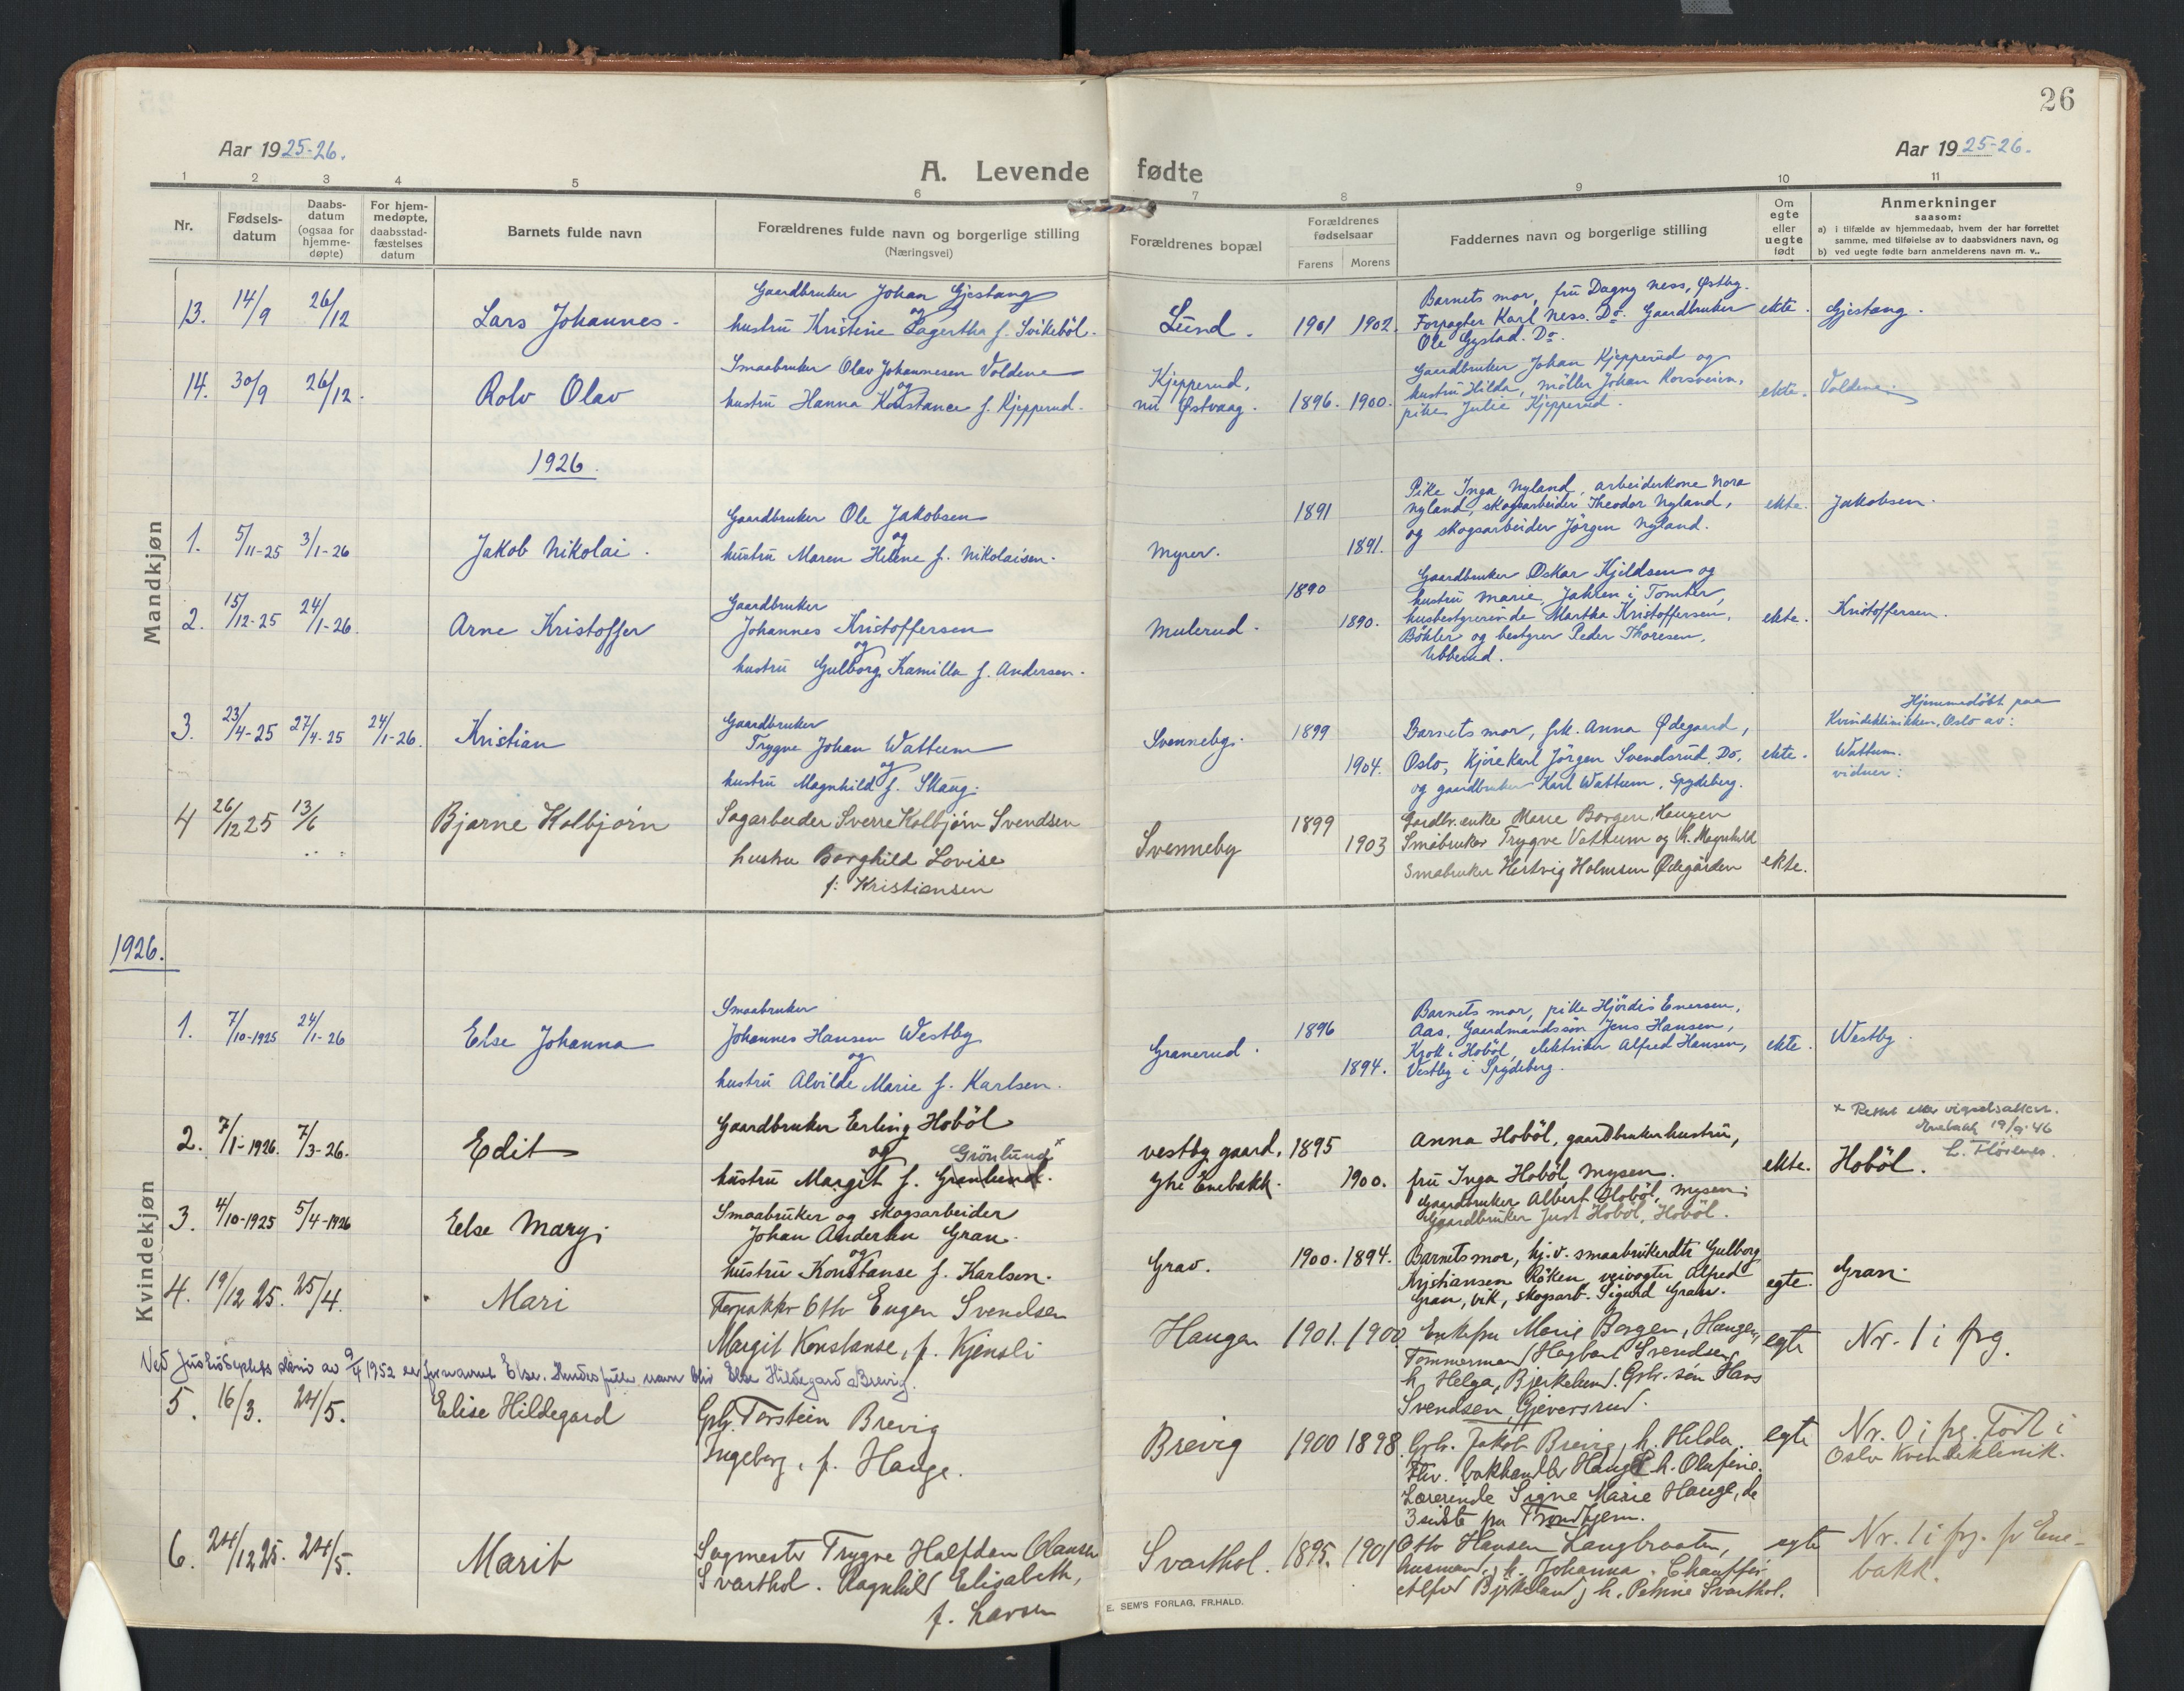 26
Aar 1925-26.
Aar 1925-26.
A. Levende fødte
1 2 3 4 5 6 7 8 9 10 11
Nr.
Fødsels-
datum
Daabs-
datum
(ogsaa for
hjemme-
døpte)
For hjem-
medøpte,
daabsstad-
fæstelses
datum
Barnets fulde navn
Forældrenes fulde navn og borgerlige stilling
(Næringsvei)
Forældrenes bopæl
Forældrenes
fødselsaar
Farens Morens
Faddernes navn og borgerlige stilling
Om
egte
eller
uegte
født
Anmerkninger
saasom:
a) i tilfælde av hjemmedaab, hvem der har forrettet
samme, med tilføielse av to daabsvidners navn, og
b) ved uegte fødte barn anmelderens navn m. v..
Mandkjøn
13. 14/9 26/12
Lars Johannes
Gaardbruker Johan Gjestang
og
hustru Kristine Lagertha f. Svikebøl.
Lund.
1901 1902.
Barnets mor, fru Dagny Ness, Østby.
Forpagter Karl Ness. Do. Gaardbruker
Ole Gystad. Do.
ekte.
Gjestang.
14. 30/9 26/12.
Rolv Olav
Smaabruker Olav Johannesen Voldene
og
hustru Hanna Konstance f. Kjepperud.
Kjepperud,
nu Østvaag.
1896. 1900.
Gaardbruker Johan Kjepperud og
hustru Hilda, møller Johan Korsveien,
pike Julie Kjepperud.
ekte.
Voldene.
1926.
1. 5/11-25 3/1-26
Jakob Nikolai.
Gaardbruker Ole Jakobsen
og
hustru Maren Helene f. Nikolaisen.
Myrer.
1891
1891.
Pike Inga Nyland, arbeiderkone Nora
Nyland, skogsarbeider Theodor Nyland,
og skogsarbeider Jörgen Nyland.
ekte.
Jakobsen.
2. 15/12-25 24/1-26.
Arne Kristoffer
Gaardbruker
Johannes Kristoffersen
og
hustru Gulborg Kamilla f. Andersen.
Mulerud.
1890
1890.
Gaardbruker Oskar Kjeldsen og
hustru Marie, Jahren i Tomter,
husbestyrerinde Martha Kristoffersen,
Bøhler og bestyrer Peder Thoresen,
Ubberud.
ekte.
Kristoffersen.
3. 23/4-25 27/4-25 24/1-26.
Kristian
Gaardbruker
Trygve Johan Wattum
og
hustru Magnhild f. Skaug.
Svenneby.
1899
1904.
Barnets mor, frk. Anna Ødegaard,
Oslo, Kjörekarl Jörgen Svendsrud. Do,
og gaardbruker Karl Wattum, Spydeberg.
ekte.
Hjemmedöbt paa
Kvindeklinikken, Oslo av:
Wattum.
vidner:
4 26/12 25 13/6
Bjarne Kolbjørn
Sagarbeider Sverre Kolbjørn Svendsen
hustru Borghild Lovise
f. Kristiansen
Svenneby
1899
1903
Gardbr.enke Marie Borgen Haugen
Småbruker Trygve Vattum og h. Magnhild
Småbruker Hertvig Holmsen Ødegården
ekte.
1926.
Kvindekjøn
1. 7/10-1925 24/1-26
Else Johanna
Smaabruker
Johannes Hansen Westby
og
hustru Alvilde Marie f. Karlsen.
Granerud.
1896
1894.
Barnets mor, pike Hjördis Enersen,
Aas, Gaardmandssøn Jens Hansen,
Krok i Hoböl, elektriker Alfred Hansen,
Vestby i Spydeberg.
ekte.
Westby.
2. 7/1-1926. 7/3-26.
Edit
Gaardbruker Erling Hoböl
og Grönlund x
hustru Margit f. Granlund.
Vestby gaard,
Ytre Enebakk.
1895
1900.
Anna Hoböl, gaardbrukerhustru,
fru Inga Hoböl, Mysen.
Gaardbruker Albert Hoböl, Mysen;
Gaardbruker Just Hoböl, Hoböl.
ekte.
Hoböl.
x Rettet etter vigselsattest.
Enebakk 19/9-46
3. 4/10-1925 5/4-1926
Else Mary
Smaabruker og skogsarbeider
Johan Andersen Gran.
og
hustru Konstanse f. Karlsen.
Grav.
1900. 1894.
Barnets mor, hj.v. smaabrukerdtr Gulborg
Kristiansen Röken, veivogter Alfred
Gran, Vik, skogsarb. Sigurd Gran.
egte.
Gran.
4. 19/12 25. 25/4.
Mari
Forpakter Otto Eugen Svendsen
Margit Konstanse, f. Kjensli
Haugen
1901. 1900
Enkefru Marie Borgen, Haugen,
Tømmermann Hagbart Svendsen,
h. Helga, Bjerkelund. Grbr. søn Hans
Svendsen, Gjeversrud.
egte
Nr. 1 i prg.
Ved Justisdeptets skriv av 9/4 1952 er fornavnet Else. Hendes fulle navn blir Else Hildegard Brevig.
5. 16/3. 24/5.
Elise Hildegard
Grbr. Torstein Brevig
Ingeborg, f. Hauge.
Brevig
1900 1898.
Grbr. Jakob Brevig, h. Hilda.
Fhv. bokhandler Hauge h. Olufine.
Lærerinde Signe Marie Hauge, de
3 sidste fra Trondhjem.
egte
Nr. 0 i prg. Født i
Oslo Kvindeklinik.
6. 24/12 25. 24/5.
Marit
Sagmester Trygve Halfdan Olausen
Svarthol. Ragnhild Elisabeth,
f. Larsen
Svarthol.
1895. 1901
Otto Hansen Langbraaten,
husmand, h. Johanna. Chauffør
Alfred Bjerkelund, h. Petrine Svarthol.
egte
Nr. 1 i prg. fr Ene-
bakk.
E. SEM'S FORLAG, FR.HALD.